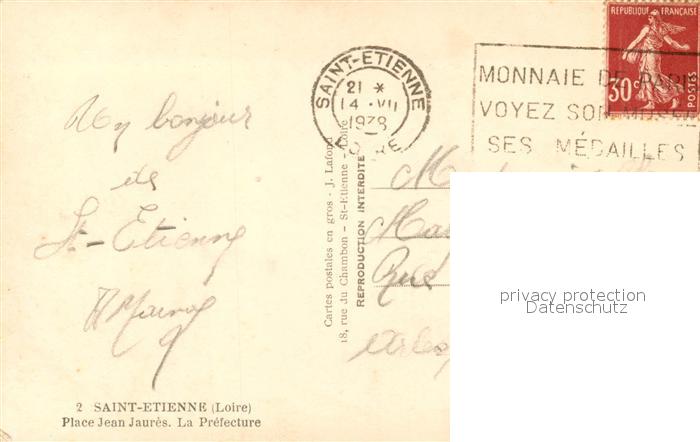 RÉPUBLIQUE FRANÇAISE
30c
POSTES
SAINT-ETIENNE
21 *
14 - VII
1938
LOIRE
MONNAIE DE PARIS
VOYEZ SON MUSÉE
SES MÉDAILLES
Un bonjour
de
St-Etienne
Cartes postales en gros - J. Lafond
18, rue du Chambon - St-Etienne - Loire
REPRODUCTION INTERDITE
M
Rue
privacy protection
Datenschutz
2 SAINT-ETIENNE (Loire)
Place Jean Jaurès. La Préfecture